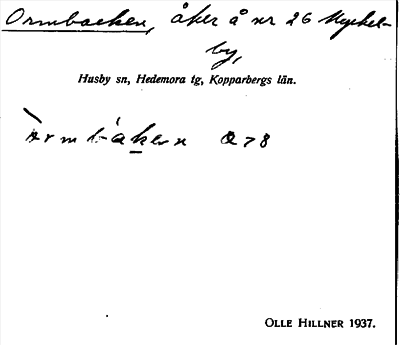 Ormbacken, åker å nr 26 Myckel-
by,
Husby sn, Hedemora tg, Kopparbergs län.
278
OLLE HILLNER 1937.